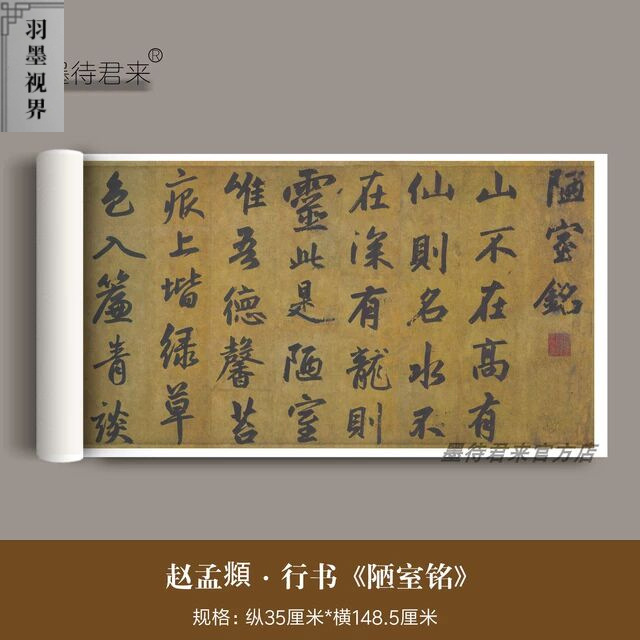 羽墨视界
墨待君来®
陋室銘
山不在高有
仙則名水不
在深有龍則
靈此是陋室
唯吾德馨苔
痕上堦緑草
色入簾青談
墨待君来官方店
赵孟頫·行书《陋室铭》
规格:纵35厘米*横148.5厘米